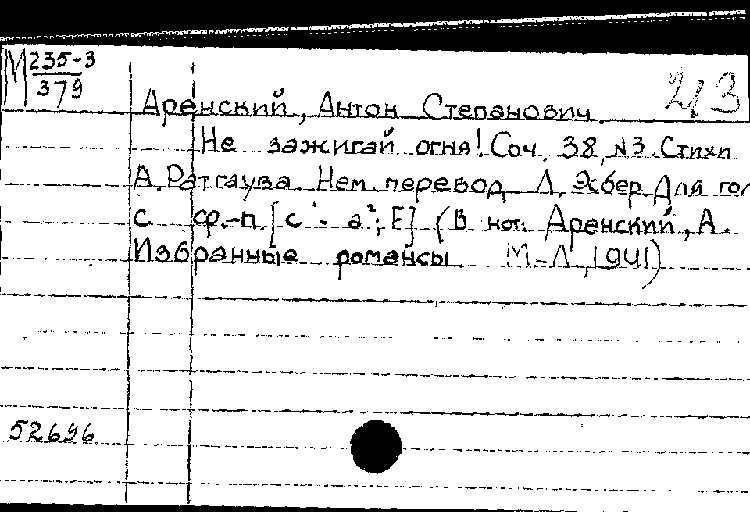 М 235-3
379
2/3
Аренский, Антон Степанович.
Не зажигай огня! Соч. 38, №3. Стихи
А. Ратгауза. Нем. перевод Л. Эсбер. Для гол
с ф.-п. [c¹ - a²; E] (В нот: Аренский, А.
Избранные романсы М-Л, 1941)
52696